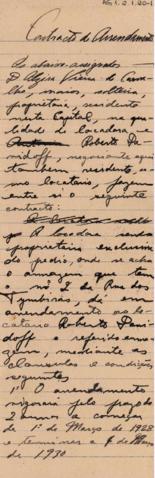 AS1.2.1.20-1
Contracto de Arrendamento
Os abaixo-assignados —
D. Alzira Vieira de Carva-
lho, maior, solteira,
proprietaria, residente
nesta Capital, na qua-
lidade de locadora e
Roberto Da-
vidoff, negociante aqui
tambem residente, co-
mo locatario, fazem
entre si o seguinte
contracto:
A locadora sendo
proprietaria exclusiva
do predio, onde se acha
o armazem que tem
o nº 2 da Rua dos
Tymbiras, dá em
arrendamento ao lo-
catario Roberto Davi-
doff o referido arma-
zem, mediante as
clausulas e condições
seguintes
1º O arrendamento
vigorará pelo prazo de
2 annos a começar
de 1º de Março de 1928
e terminar a 1º de Março
de 1930